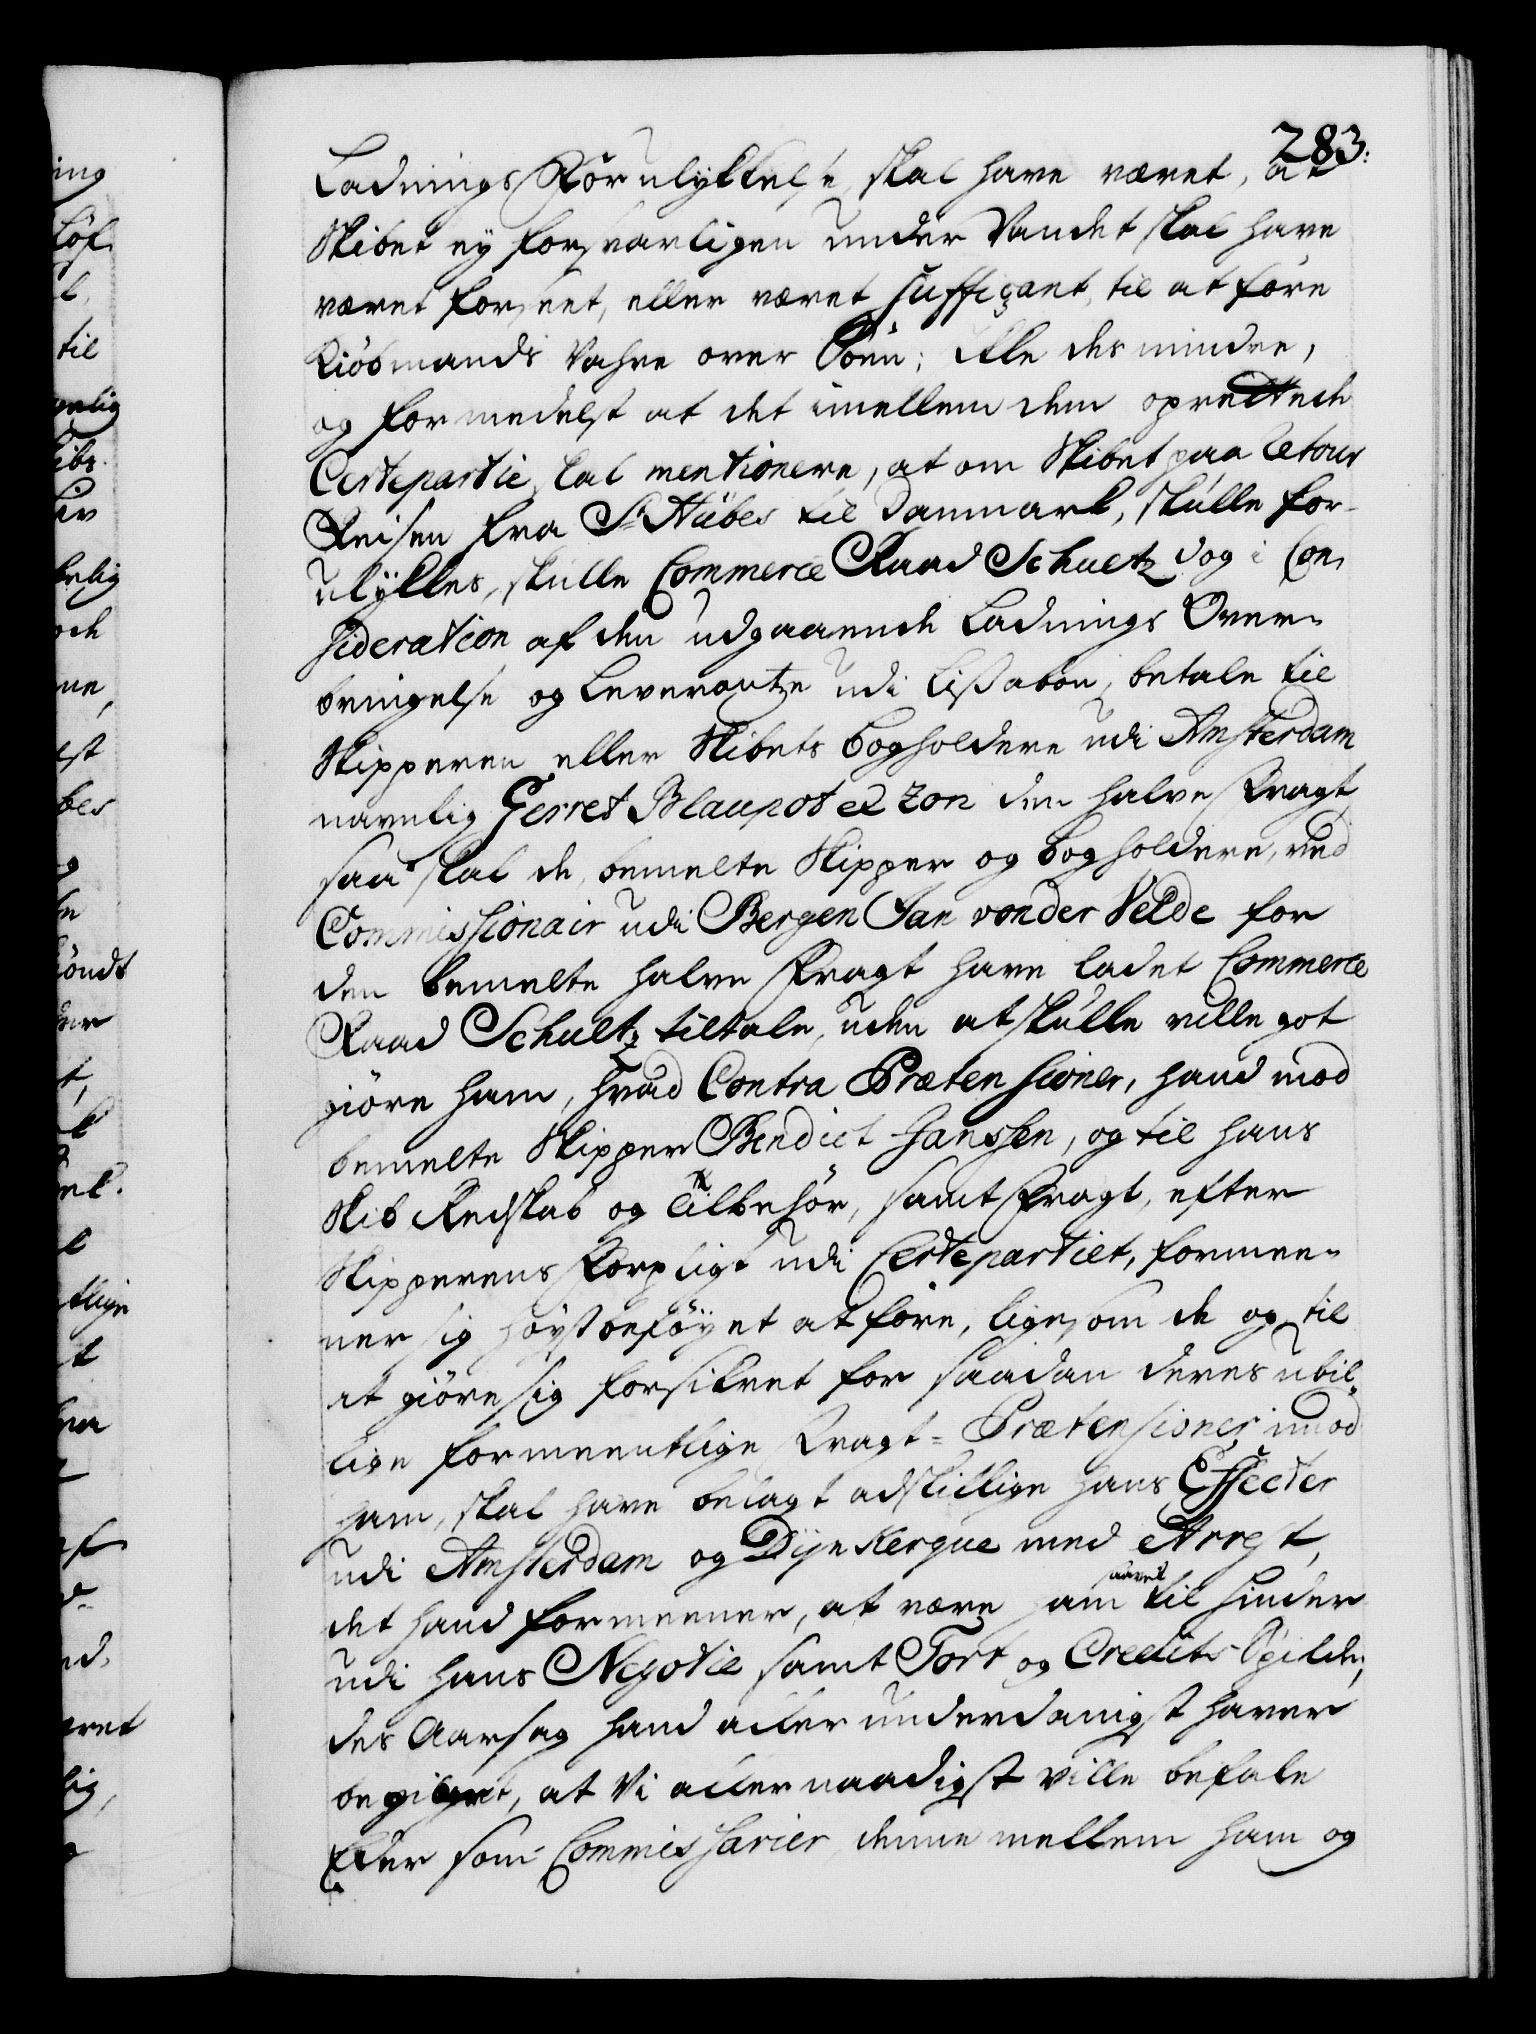 283.
Ladnings Forulykkelse, skal have været, at
Skibet ey forsvarligen under Vandet skal have
været forseet, eller været suffiçant, til at före
Kiöbmands Vahre over Söen; Ikke desmindre,
og formedelst at det imellem dem oprettede
Certepartie, skal mentionere, at om Skibet paa Retour
Reisen fra St. Hübes til Danmark, skulle for-
ulykkes, skulle Commerce Raad Schultz dog i Con-
sideration af den udgaaende Ladnings Over-
bringelse og Leverantze udi Lissabon, betale til
Skipperen eller Skibets Bogholdere udi Amsterdam
navnlig Gerret Blaupot ez zon den halve Fragt
saa skal de, bemelte Skipper og Bogholdere, ved
Commissionair udi Bergen Jan vonder Velde for
den bemelte halve Fragt have ladet Commerce
Raad Schultz tiltale, uden at skulle ville got
giöre ham, hvad Contra Prætensioner, hand mod
bemelte Skipper Bendict Hanssen, og til hans
Skib, Redskab og Tilbehör, samt Fragt, efter
Skipperens Forpligt udi Certepartiet, formee-
ner sig höystbeföyet at före, ligesom de og til
at giöre sig forsikret for saadan deres ubil-
lige formeentlige Fragt-Prætensioner imod
ham, skal have belagt adskillige hans Effecter
udi Amsterdam og Dÿnkerque med Arrest,
det hand formeener, at være ham saavel til hinder
udi hans Negotie samt Tort og Credits Spilde,
des Aarsag hand allerunderdanigst haver
begiæret, at Vi allernaadigst ville befale
Eder som Commissarier, denne mellem ham og